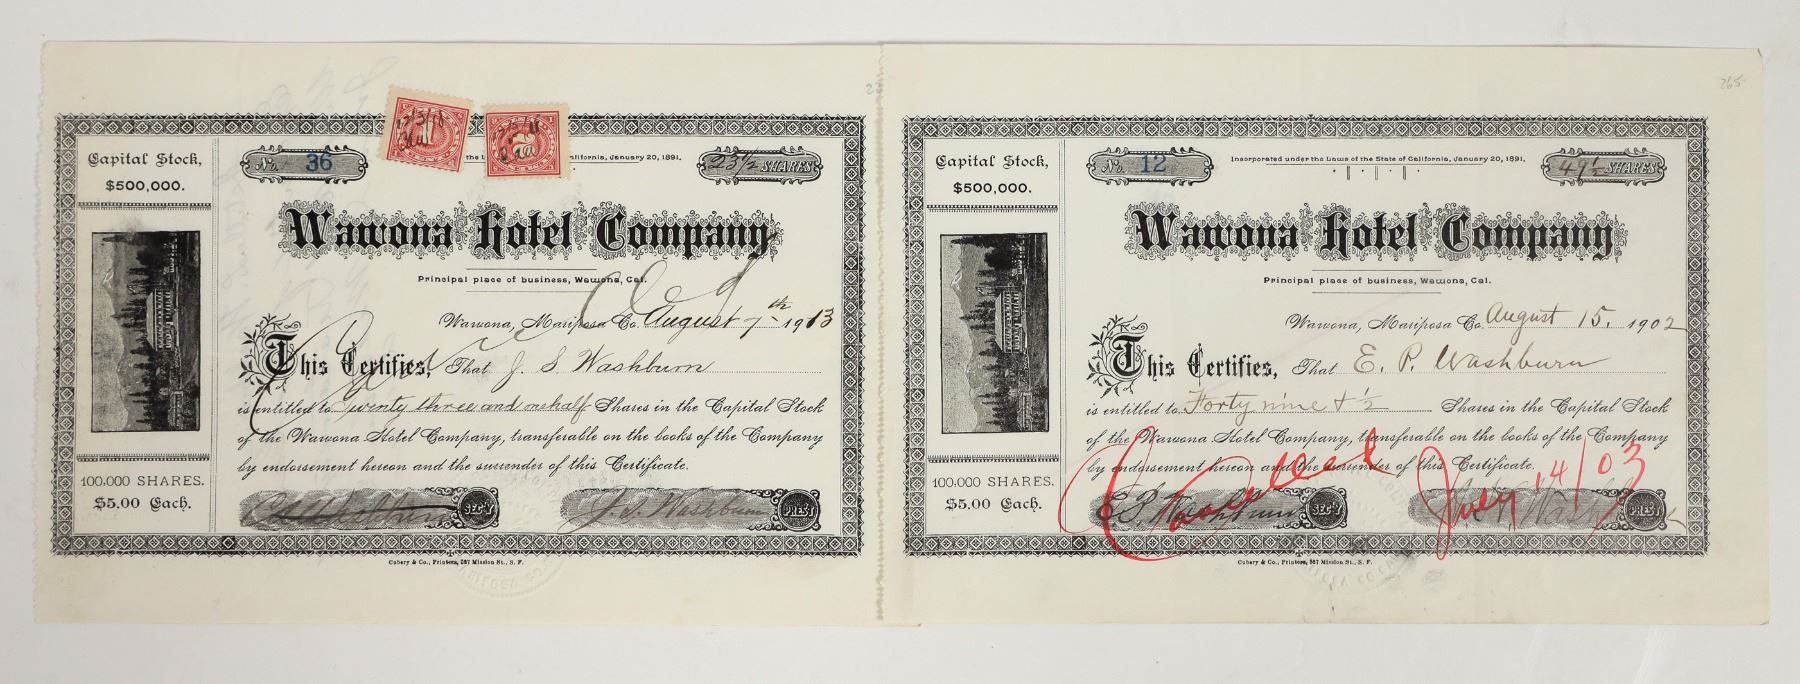 Capital Stock,
$500,000.
100,000 SHARES.
$5.00 Each.
No. 36
12/3/18
1
1
California, January 20, 1891,
23 1/2 SHARES
Wawona Hotel Company
Principal place of business, Wawona, Cal.
Wawona, Mariposa Co. August 7th 1913
This Certifies, That J. S. Washburn
is entitled to Twenty three and onehalf Shares in the Capital Stock
of the Wawona Hotel Company, transferable on the books of the Company
by endorsement hereon and the surrender of this Certificate.
Cancelled
SEC'Y
J. S. Washburn PREST
Cubery & Co., Printers, 587 Mission St., S. F.
265
Capital Stock,
$500,000.
100,000 SHARES.
$5.00 Each.
No. 12
Incorporated under the Laws of the State of California, January 20, 1891,
49 1/2 SHARES
Wawona Hotel Company
Principal place of business, Wawona, Cal.
Wawona, Mariposa Co. August 15. 1902
This Certifies, That E. P. Washburn
is entitled to Forty nine & 1/2 Shares in the Capital Stock
of the Wawona Hotel Company, transferable on the books of the Company
by endorsement hereon and the surrender of this Certificate.
Cancelled July 14/03
E. P. Washburn SEC'Y
Washburn PREST
Cubery & Co., Printers, 587 Mission St., S. F.